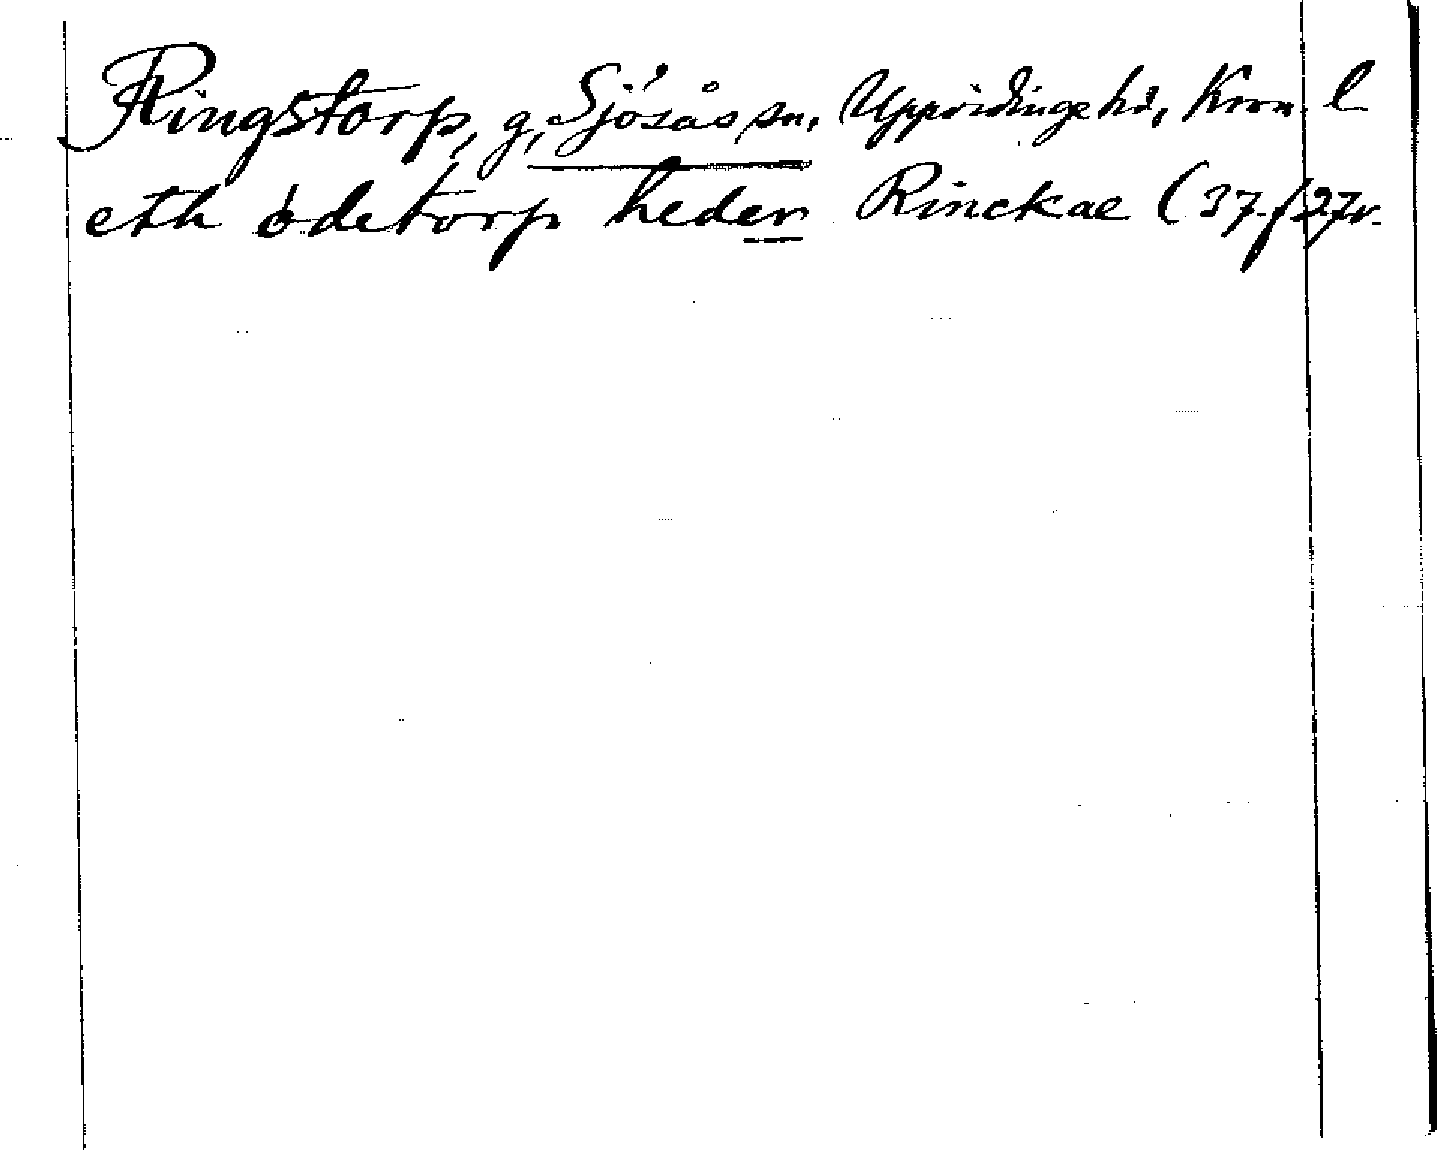 Ringstorp, g, Sjösås sn, Uppvidinge hd, Kron. l
eth ödetorp heder Rinckae (37 f 27v.